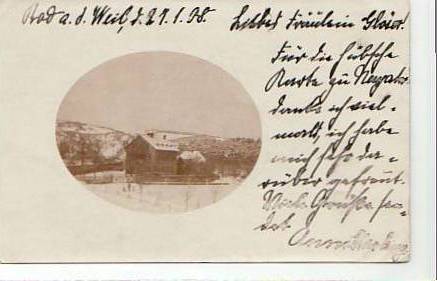 Rod a. d. Weil, d. 27. 1. 08.
Liebes Fräulein
Für die hübsche
Karte zu Neujahr
danke ich viel-
mals, ich habe
mich sehr da-
rüber gefreut.
Viele Grüße sen-
det